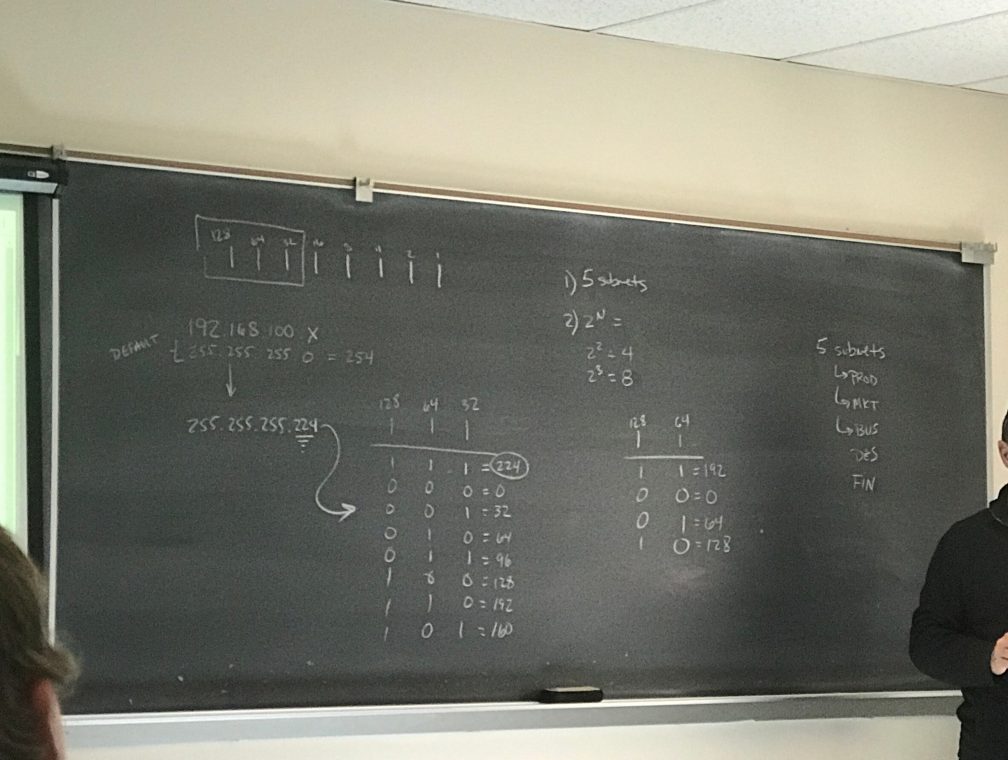 128 64 32 16 8 4 2 1
1 1 1 1 1 1 1 1
192.168.100 X
DEFAULT 255.255.255 0 = 254
255.255.255.224
128 64 32
1 1 1
1 1 1 = 224
0 0 0 = 0
0 0 1 = 32
0 1 0 = 64
0 1 1 = 96
1 0 0 = 128
1 1 0 = 192
1 0 1 = 160
1) 5 subnets
2) 2^N =
2^2 = 4
2^3 = 8
128 64
1 1
1 1 = 192
0 0 = 0
0 1 = 64
1 0 = 128
5 subnets
↳ PROD
↳ MKT
↳ BUS
DES
FIN